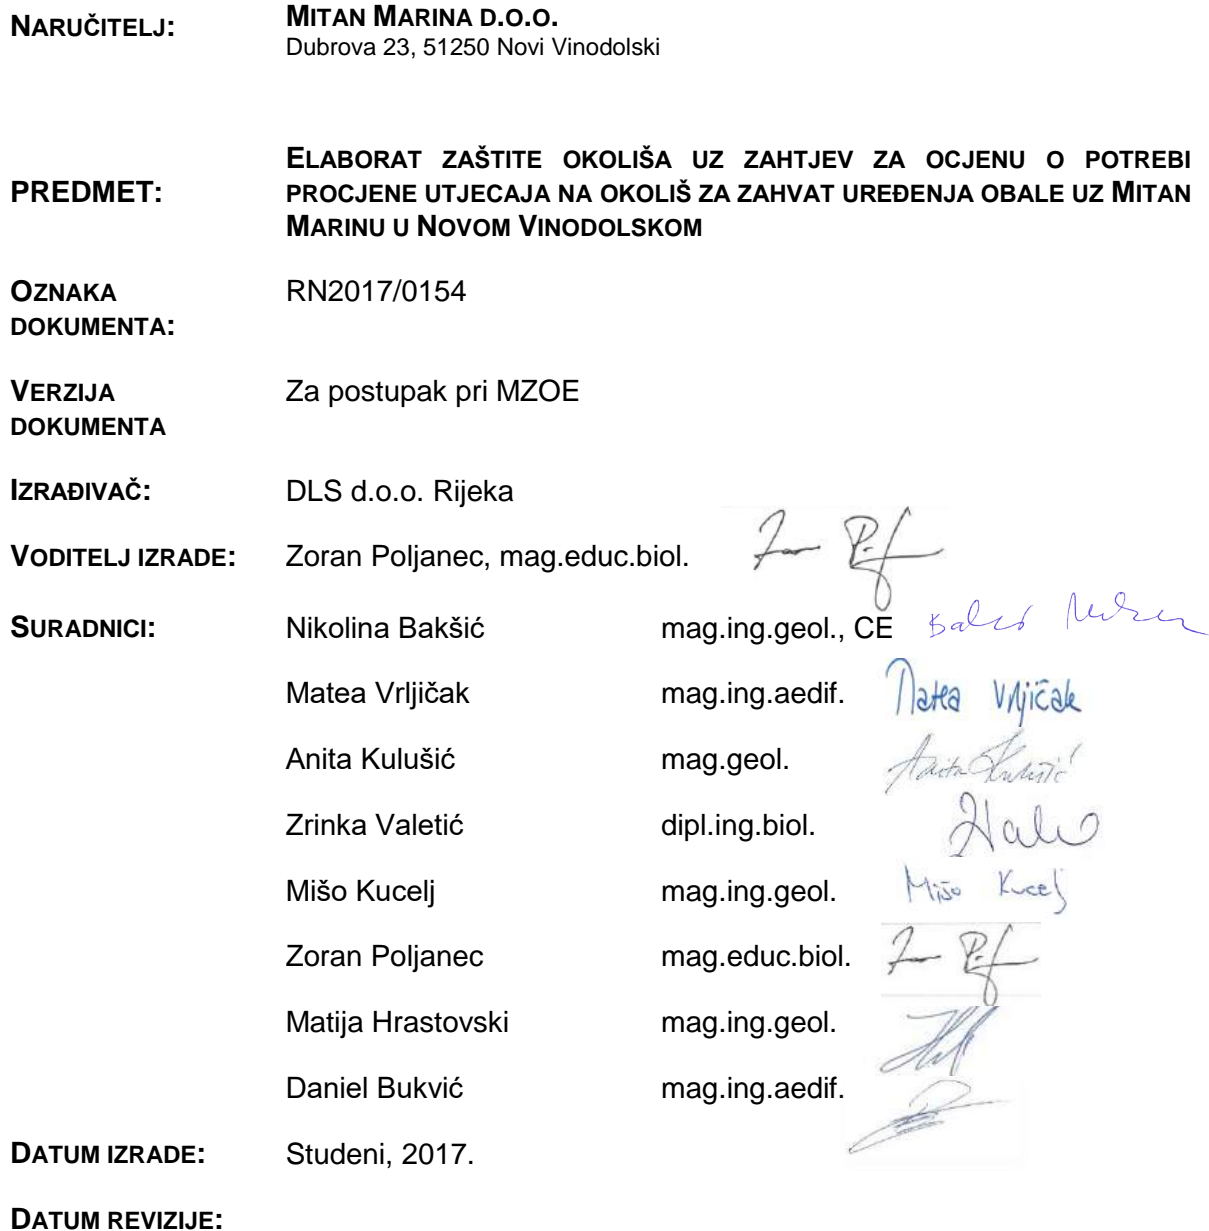 NARUČITELJ: MITAN MARINA D.O.O.
Dubrova 23, 51250 Novi Vinodolski
PREDMET: ELABORAT ZAŠTITE OKOLIŠA UZ ZAHTJEV ZA OCJENU O POTREBI
PROCJENE UTJECAJA NA OKOLIŠ ZA ZAHVAT UREĐENJA OBALE UZ MITAN
MARINU U NOVOM VINODOLSKOM
OZNAKA DOKUMENTA: RN2017/0154
VERZIJA DOKUMENTA Za postupak pri MZOE
IZRAĐIVAČ: DLS d.o.o. Rijeka
VODITELJ IZRADE: Zoran Poljanec, mag.educ.biol.
SURADNICI: Nikolina Bakšić mag.ing.geol., CE
Matea Vrljičak mag.ing.aedif. Matea Vrljičak
Anita Kulušić mag.geol. Anita Kulušić
Zrinka Valetić dipl.ing.biol.
Mišo Kucelj mag.ing.geol. Mišo Kucelj
Zoran Poljanec mag.educ.biol.
Matija Hrastovski mag.ing.geol.
Daniel Bukvić mag.ing.aedif.
DATUM IZRADE: Studeni, 2017.
DATUM REVIZIJE: